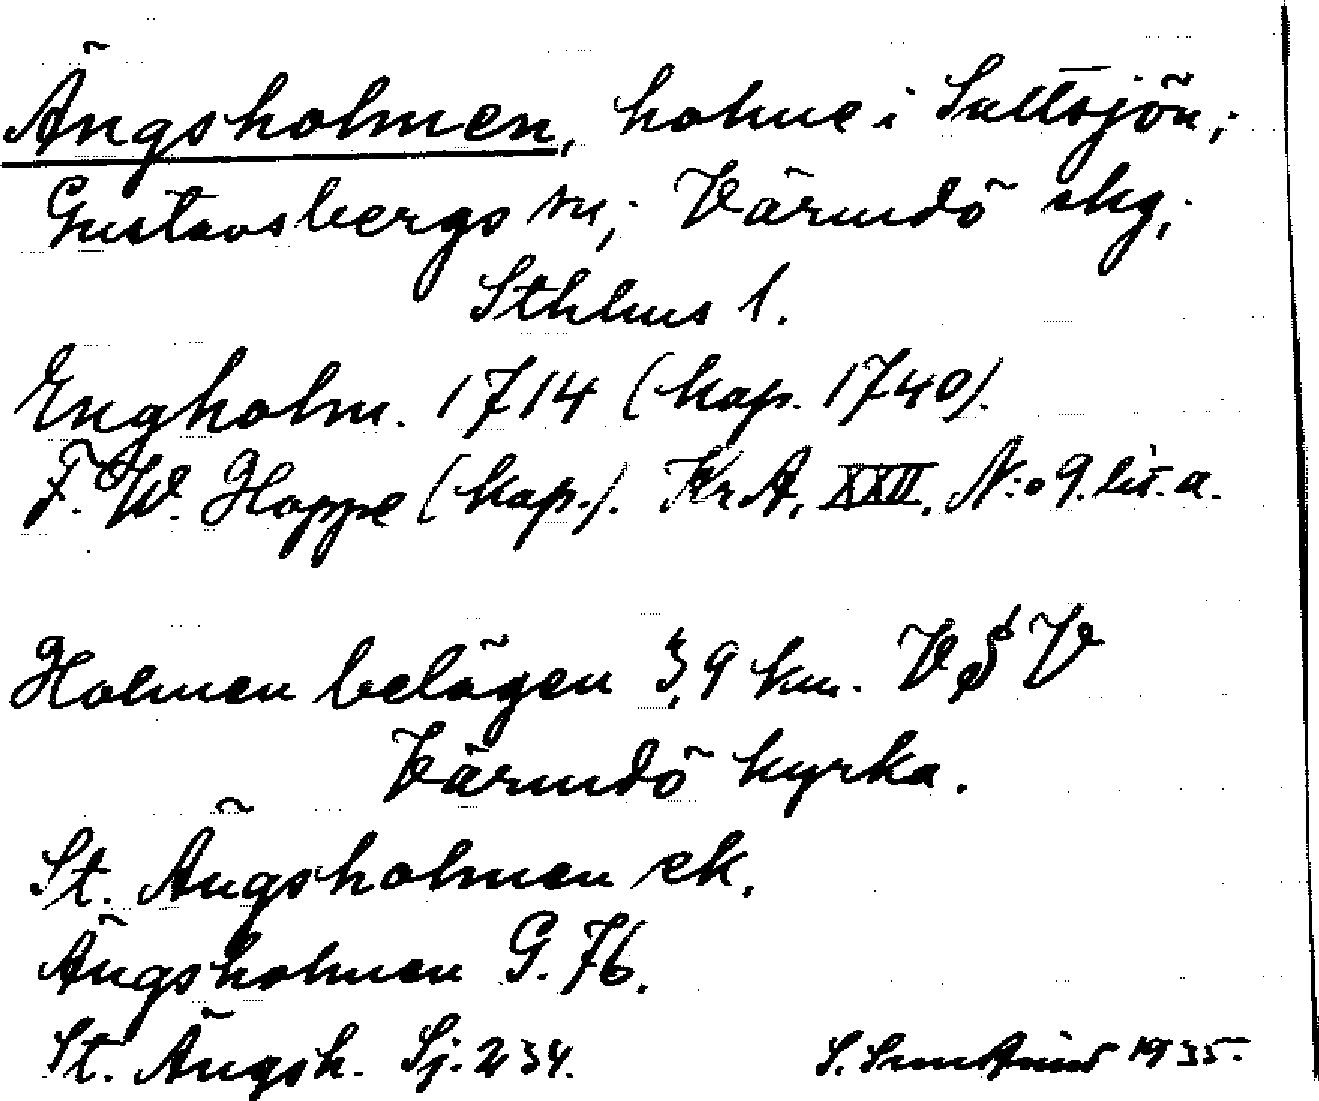 Ängsholmen, holme i Saltsjön;
Gustavsbergs sn; Värmdö skg;
Sthlms l.
Engholm. 1714 (kap. 1740).
F. W. Hoppe (kap.). Kr.A. XXII. N:o 9. lit. a.
Holmen belägen 3,9 km. V§V
Värmdö kyrka.
St. Ängsholmen ek.
Ängsholmen G. 76.
St. Ängsh. Sj. 234.
S. 1935.